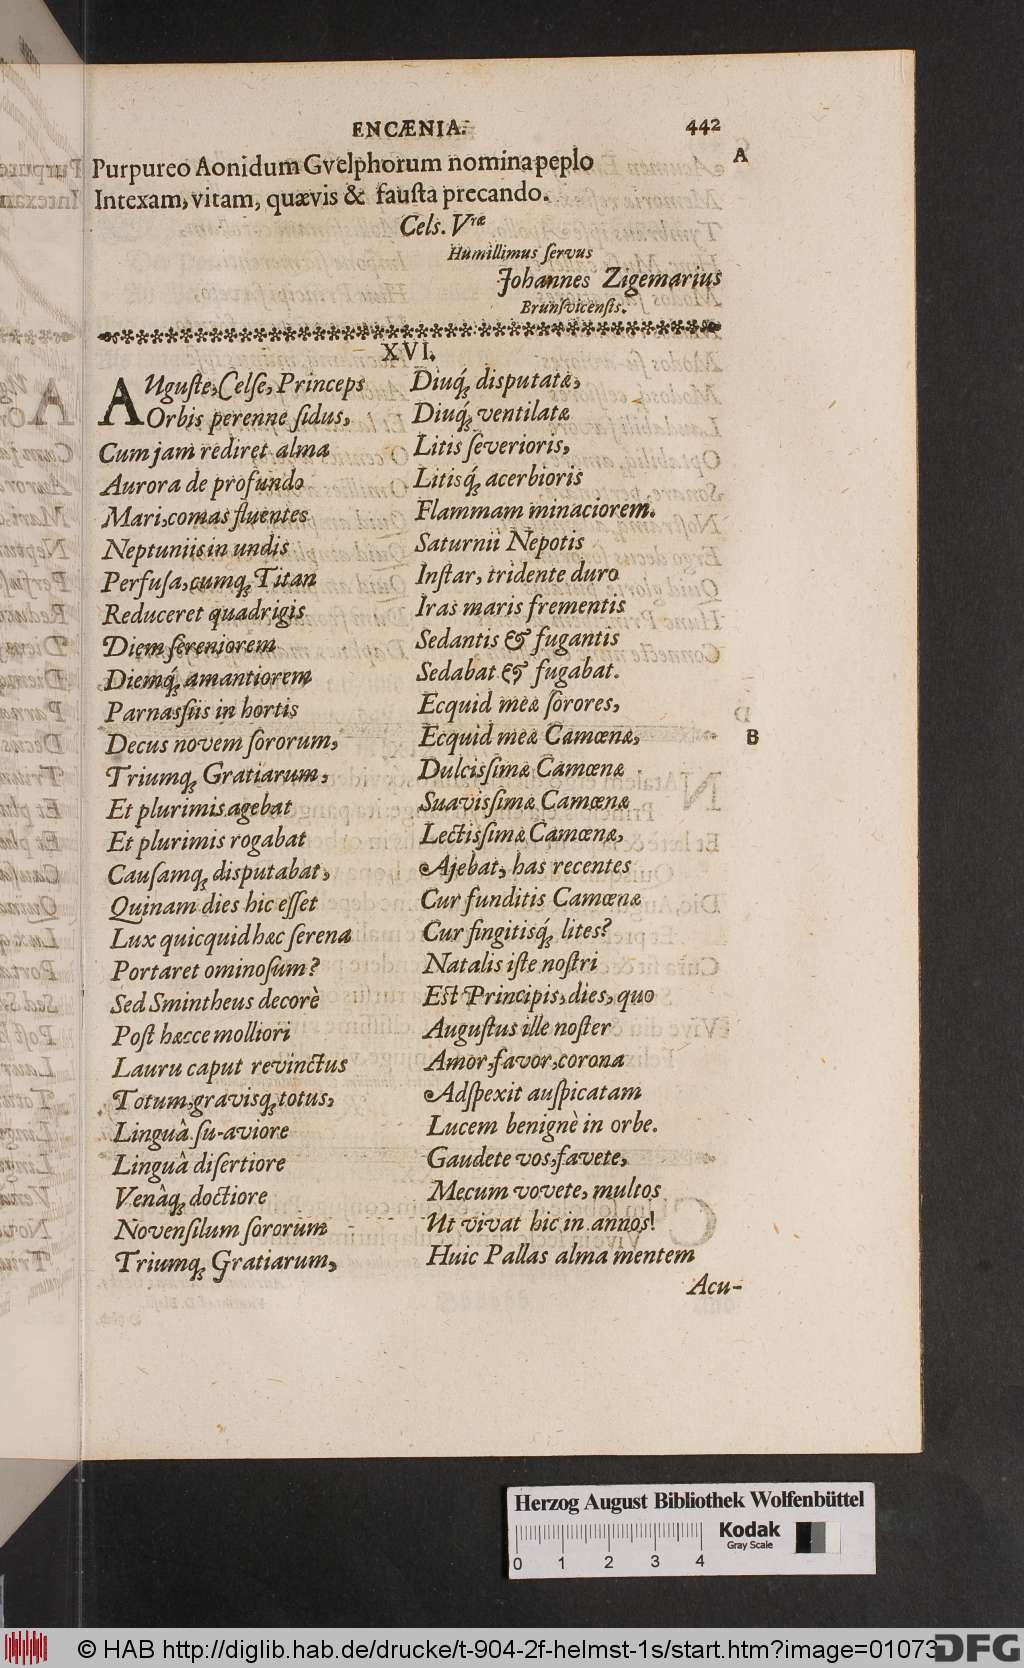 ENCÆNIA.
442
Purpureo Aonidum Gvelphorum nomina peplo
A
Intexam, vitam, quævis & fauſta precando.
Cels. Vræ
Humillimus ſervus
Johannes Zigemarius
Brunſvicenſis.
XVI.
AUguſte, Celſe, Princeps
Orbis perenne ſidus,
Cum jam rediret alma
Aurora de profundo
Mari, comas fluentes
Neptuniis in undis
Perfuſa, cumq́; Titan
Reduceret quadrigis
Diem ſereniorem
Diemq́; amantiorem
Parnaſſiis in hortis
Decus novem ſororum,
Triumq; Gratiarum,
Et plurimis agebat
Et plurimis rogabat
Cauſamq; diſputabat,
Quinam dies hic eſſet
Lux quicquid hæc ſerena
Portaret ominoſum?
Sed Smintheus decorè
Poſt hæcce molliori
Lauru caput revinctus
Totum, gravisq; totus,
Linguâ ſu-aviore
Linguâ diſertiore
Venâq; doctiore
Novenſilum ſororum
Triumq; Gratiarum,
Diuq́; diſputatæ,
Diuq́; ventilatæ
Litis ſeverioris,
Litisq́; acerbioris
Flammam minaciorem.
Saturnii Nepotis
Inſtar, tridente duro
Iras maris frementis
Sedantis & fugantis
Sedabat & fugabat.
Ecquid meæ ſorores,
Ecquid meæ Camœnæ,
B
Dulcisſimæ Camœnæ
Suavisſimæ Camœnæ
Lectisſimæ Camœnæ,
Ajebat, has recentes
Cur funditis Camœnæ
Cur fingitisq́; lites?
Natalis iſte noſtri
Eſt Principis, dies, quo
Auguſtus ille noſter
Amor, favor, corona
Adſpexit auſpicatam
Lucem benignè in orbe.
Gaudete vos, favete,
Mecum vovete, multos
Ut vivat hic in annos!
Huic Pallas alma mentem
Acu-
Herzog August Bibliothek Wolfenbüttel
Kodak
Gray Scale
0 1 2 3 4
© HAB http://diglib.hab.de/drucke/t-904-2f-helmst-1s/start.htm?image=01073
DFG